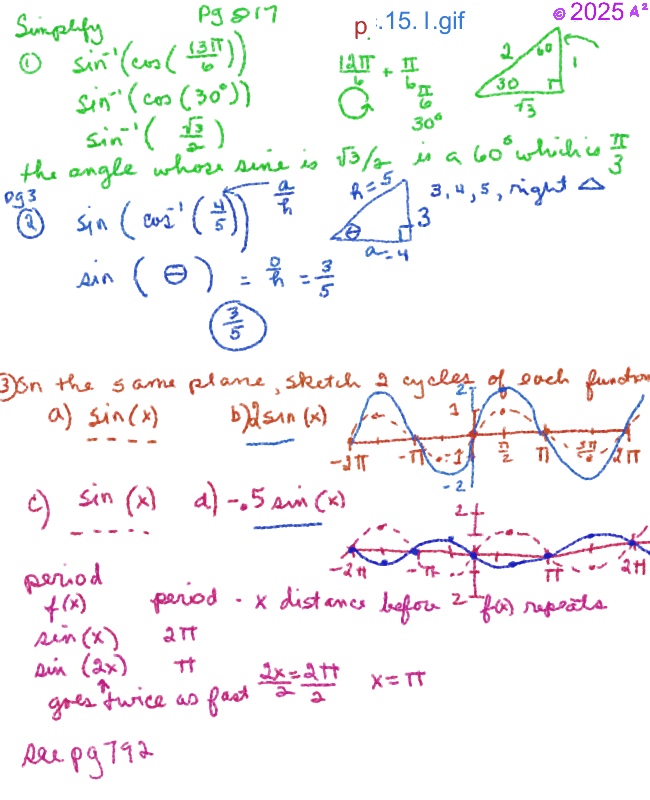 Simplify pg 817 p .15. I.gif © 2025 A²
① sin⁻¹(cos(13π/6)) 12π/6 + π/6 2 60 1
sin⁻¹(cos(30°)) π/6 30 √3
sin⁻¹(√3/2) 30°
the angle whose sine is √3/2 is a 60° which is π/3
pg3
② sin(cos⁻¹(4/5)) a/h h=5 3 a=4 3, 4, 5, right △
sin(θ) = o/h = 3/5 θ
3/5
③ On the same plane, sketch 2 cycles of each function
a) sin(x) b) 2sin(x) 2 1 -1 -2
-2π -π π/2 π 3π/2 2π
c) sin(x) d) -.5 sin(x) 2
-2π -π π 2π
period
f(x) period - x distance before f(x) repeats 2
sin(x) 2π
sin(2x) π
goes twice as fast 2x/2 = 2π/2 x = π
see pg 792